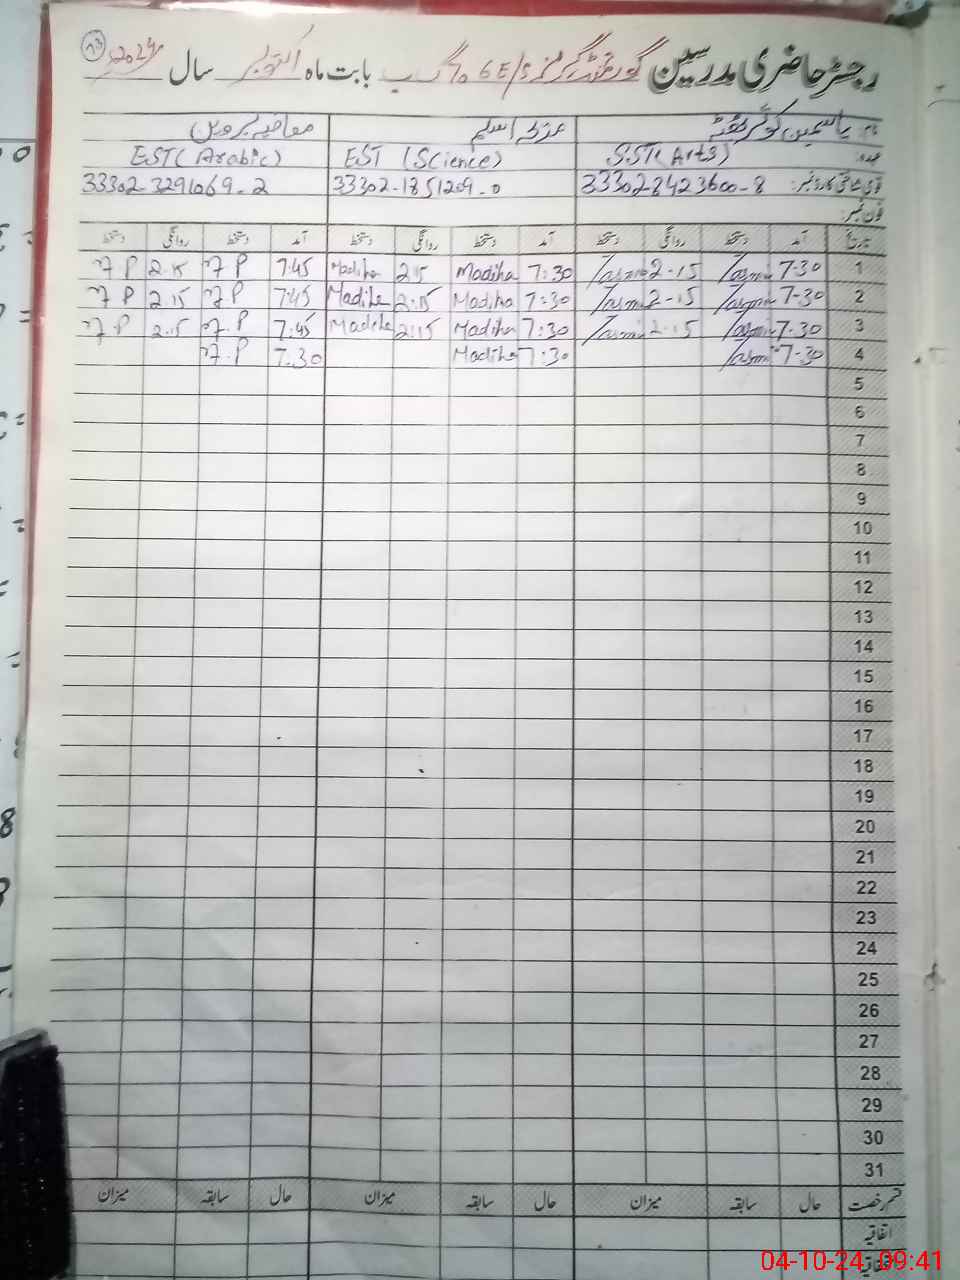 رجسٹر حاضری مدرسین گورنمنٹ گرلز 6E/S بابت ماہ اکتوبر سال 2024
73
نام: یاسمین کوثر عزیز اسلم
عہدہ: SST (Arts) EST (Science) EST (Arabic)
قومی شناختی کارڈ نمبر: 33302-8423600-8 33302-1851209-0 33302-3291069-2
فون نمبر:
تاریخ آمد دستخط روانگی دستخط آمد دستخط روانگی دستخط آمد دستخط روانگی دستخط
1 7-30 Yasmin 2-15 Yasmin 7:30 Madiha 2:15 Madiha 7:45 M.P 2.15 M.P
2 7-30 Yasmin 2-15 Yasmin 7:30 Madiha 2:15 Madiha 7:45 M.P 2.15 M.P
3 7-30 Yasmin 2-15 Yasmin 7:30 Madiha 2:15 Madiha 7:45 M.P 2.15 M.P
4 7-30 Yasmin 7:30 Madiha 7.30 M.P
5
6
7
8
9
10
11
12
13
14
15
16
17
18
19
20
21
22
23
24
25
26
27
28
29
30
31
قسم رخصت حال سابقہ میزان حال سابقہ میزان حال سابقہ میزان
اتفاقیہ
04-10-24 09:41